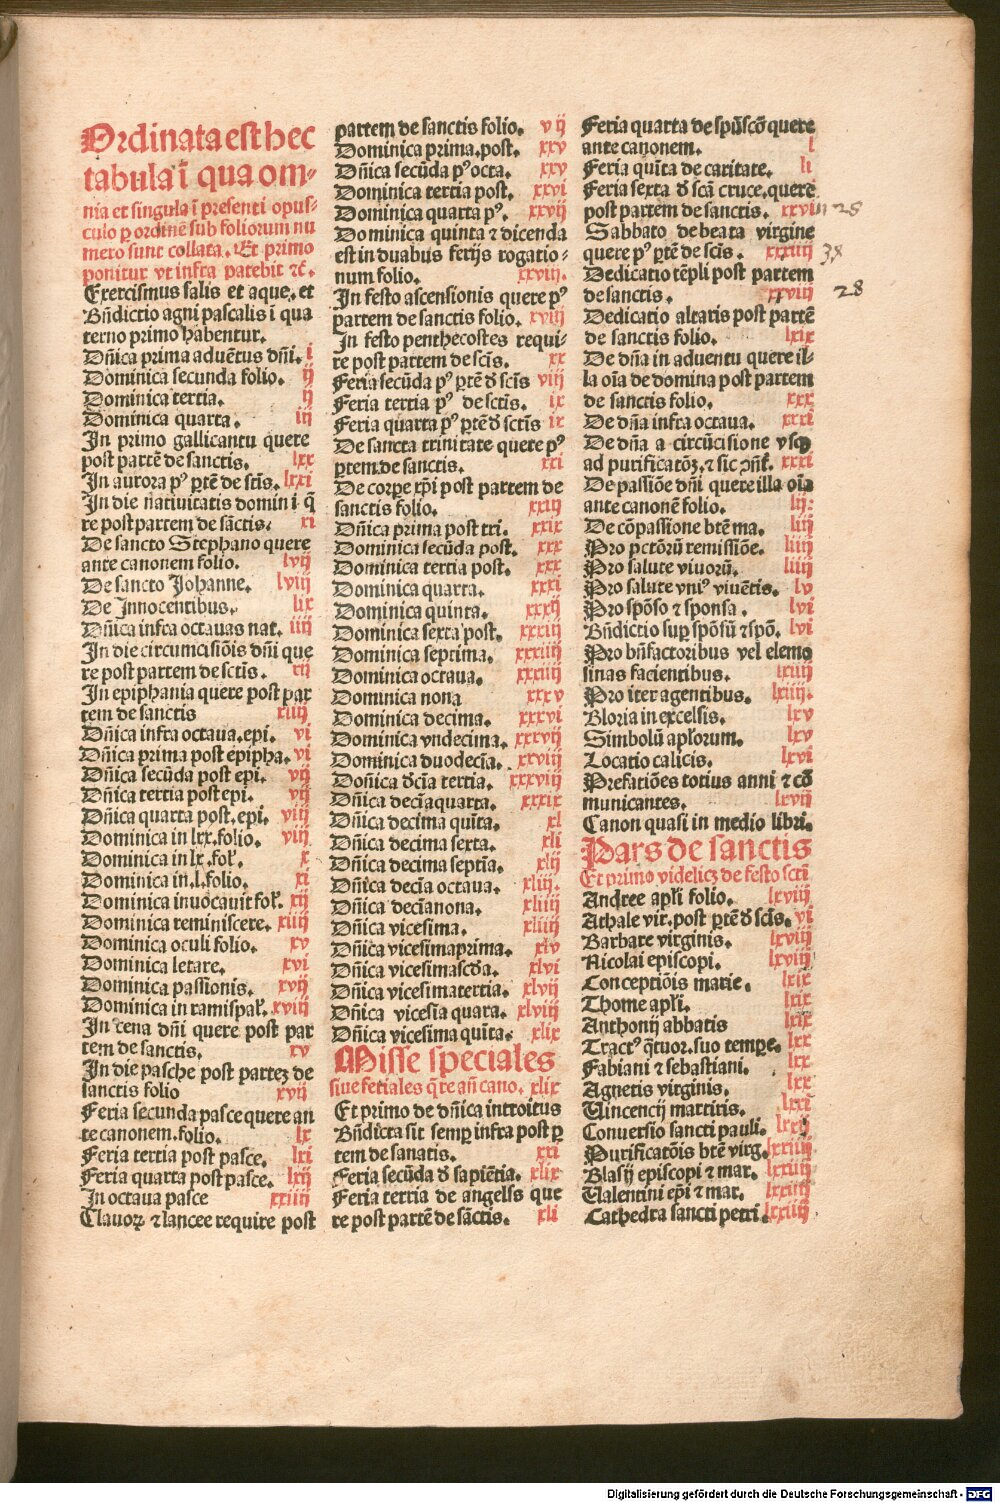 Ordinata est hec
tabula ī qua om-
nia et singula ī presenti opus-
culo ꝑ ordinē sub foliorum nu
mero sunt collata. Et primo
ponitur vt infra patebit ⁊c̄.
Exercismus salis et aque, et
Bn̄dictio agni pascalis ī qua
terno primo habentur.
Dn̄ica prima aduētus dn̄i. i
Dominica secunda folio. ij
Dominica tertia. ij
Dominica quarta. iij
In primo gallicantu quere
post partē de sanctis. lxx
In aurora pꝰ ꝑtē de sctīs. lxxi
In die natiuitatis domini q̄
re post partem de sāctis. xi
De sancto Stephano quere
ante canonem folio. lvij
De sancto Johanne. lviij
De Innocentibus. lix
Dn̄ica infra octauas nat. iiij
In die circumcisiōis dn̄i que
re post partem de sctīs. xij
In epiphania quere post par
tem de sanctis xiiij
Dn̄ica infra octaua. epi. vi
Dn̄ica prima post epipha. vi
Dn̄ica secūda post epi. vij
Dn̄ica tertia post epi. vij
Dn̄ica quarta post. epi. viij
Dominica in lxx. folio. viij
Dominica in lx. fol'. x
Dominica in .l. folio. xi
Dominica inuocauit fol'. xij
Dominica reminiscere. xiiij
Dominica oculi folio. xv
Dominica letare. xvi
Dominica passionis. xvij
Dominica in ramispal'. xviij
In cena dn̄i quere post par
tem de sanctis. xv
In die pasche post partez de
sanctis folio xvij
Feria secunda pasce quere an
te canonem. folio. lx
Feria tertia post pasce. lxi
Feria quarta post pasce. lxij
In octaua pasce xxiiij
Clauoꝝ ⁊ lancee require post
partem de sanctis folio. vij
Dominica prima. post. xxv
Dn̄ica secūda pꝰ octa. xxv
Dominica tertia post. xxvi
Dominica quarta pꝰ. xxvij
Dominica quinta ⁊ dicenda
est in duabus ferijs rogatio-
num folio. xxviij.
In festo ascensionis quere pꝰ
partem de sanctis folio. xviij
In festo penthecostes requi-
re post partem de scīs. xx
Feria secūda pꝰ ꝑtē ď scīs viij
Feria tertia pꝰ de sctīs. ix
Feria quarta pꝰ ꝑtē ď sctīs ix
De sancta trinitate quere pꝰ
ꝑtem de sanctis. xxi
De corꝑe xp̄i post partem de
sanctis folio. xxiij
Dn̄ica prima post tri. xxix
Dominica secūda post. xxx
Dominica tertia post. xxx
Dominica quarta. xxxi
Dominica quinta. xxxij
Dominica sexta post. xxxiij
Dominica septima. xxxiiij
Dominica octaua. xxxiiij
Dominica nona xxxv
Dominica decima. xxxvi
Dominica vndecima. xxxvij
Dominica duodecīa. xxxviij
Don̄ica ďcīa tertia. xxxviij
Dn̄ica decīaquarta. xxxix
Dn̄ica decima quīta. xl
Dn̄ica decima sexta. xli
Dn̄ica decima septīa. xlij
Dn̄ica decīa octaua. xliij.
Dn̄ica decīanona. xliiij
Dn̄ica vicesima. xliiij
Dn̄ica vicesimaprima. xlv
Dn̄ica vicesimascďa. xlvi
Dn̄ica vicesimatertia. xlvij
Dn̄ica vicesīa quara. xlviij
Dn̄ica vicesima quīta. xlix
Misse speciales
siue feriales q̄re an̄ cano. xlix
Et primo de dn̄ica introitus
Bn̄dicta sit semꝑ infra post ꝑ
tem de sanatis. xxi
Feria secūda ď sapiētia. xlix
Feria terria de angelis que
re post partē de sāctis. xli
Feria quarta de spūscō quere
ante canonem. l
Feria quīta de caritate. li
Feria sexta ď scā cruce. quere
post partem de sanctis. xxviij 28
Sabbato de beata virgine
quere pꝰ ꝑtē de scīs. xxxiiij 38
Dedicatio tēpli post partem
de sanctis. xxviij 28
Dedicatio altaris post partē
de sanctis folio. lxix
De dn̄a in aduentu quere il-
la oīa de domina post partem
de sanctis folio. xxx
De dn̄a infra octaua. xxxi
De dn̄a a circūcisione vsqꝫ
ad purificatōꝫ. ⁊ sic ꝯn̄t. xxxi
De passiōe dn̄i quere illa oīa
ante canonē folio. lij.
De cōpassione btē ma. liij
Pro pctōrū remissiōe. liiij
Pro salute viuorū. liiij
Pro salute vniꝰ viuētis. lv
Pro spōso ⁊ sponsa. lvi
Bn̄dictio suꝑ spōsū ⁊ spō. lvi
Pro bn̄factoribus vel elemo
sinas facientibus. lxiiij
Pro iter agentibus. lxiiij.
Gloria in excelsis. lxv
Simbolū apl'orum. lxv
Locatio calicis. lxvi
Prefatiōes totius anni ⁊ cō
municantes. lxvij
Canon quasi in medio libri.
Pars de sanctis
Et primo videlicꝫ de festo scti
Andree apl'i folio. lxviij
Athale vir. post ꝑtē ď scīs. vi
Barbare virginis. lxviij
Nicolai episcopi. lxviij
Conceptiōis marie. lxix
Thome apl'i. lxix
Anthonij abbatis lxix
Tractꝰ q̄tuor. suo temꝑe. lxx
Fabiani ⁊ sebastiani. lxx
Agnetis virginis. lxx
Vincencij martiris. lxxi
Conuersio sancti pauli. lxxij
Purificatōis btē virg. lxxiiij
Blasij episcopi ⁊ mar. lxxiiij
Valentini ep̄i ⁊ mar. lxxiiij
Cathedra sancti petri. lxxiiij
Digitalisierung gefördert durch die Deutsche Forschungsgemeinschaft - DFG